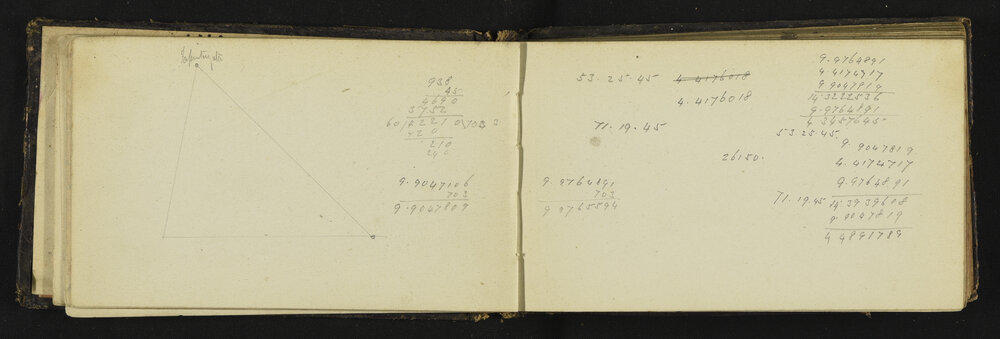 938
45
4690
3752
60/42210\703
420
210
240
9.9047106
703
9.9047809
53.25.45 4.4176018
4.4176018
71.19.45
26150.
9.9764891
703
9.9765594
9.9764891
4.4174717
9.9047819
14.3222536
9.9764891
4.3457645
53.25.45.
9.9047819
4.4174717
9.9764891
71.19.45 14.3939608
9.9047819
4.4891789